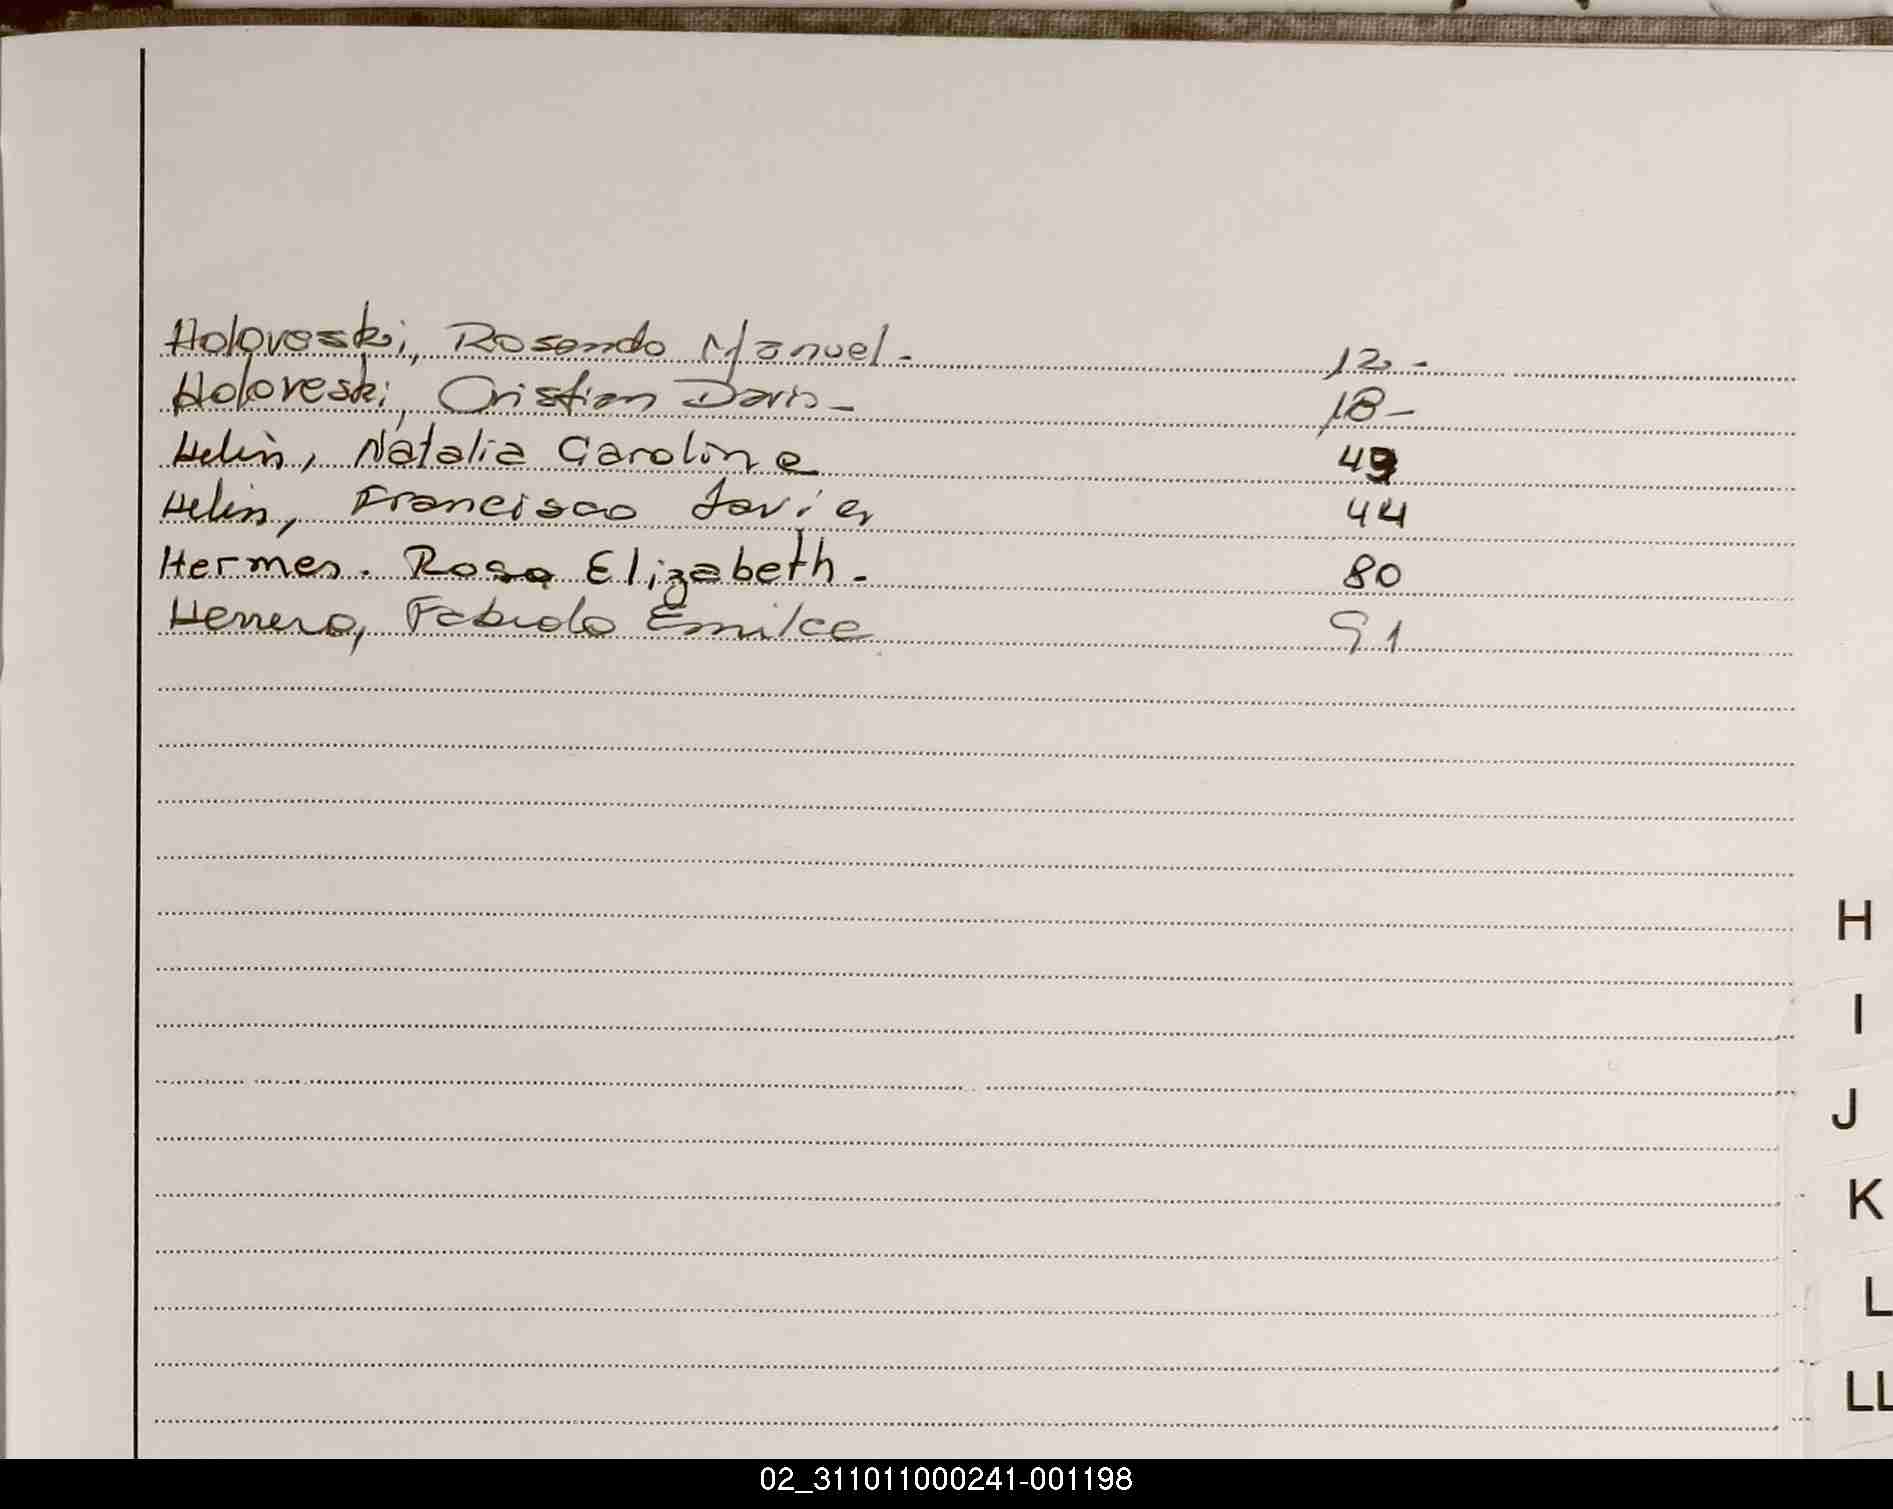 Holoveski, Rosendo Manuel. 12-
Holoveski, Cristian Dario- 18-
Helin, Natalia Carolina 43
Helin, Francisco Javier 44
Hermes. Rosa Elizabeth. 80
Herrera, Fabiola Emilce 91
H
I
J
K
L
LL
02_311011000241-001198